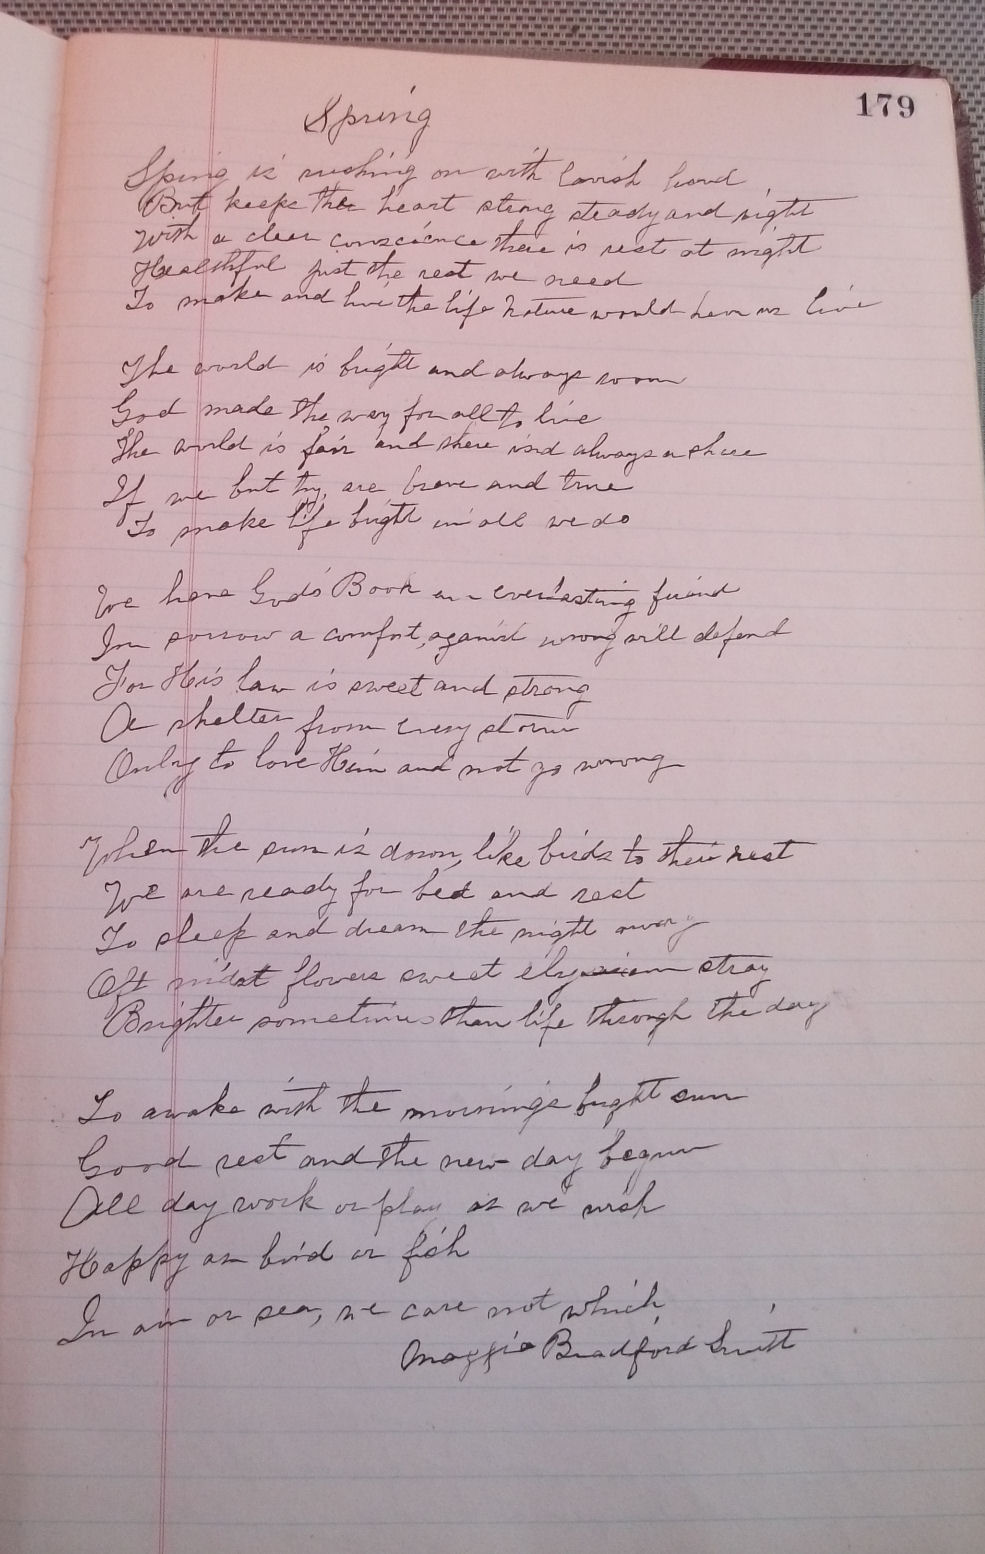 179
Spring
Spring is rushing on with lavish hand,
But keeps the heart strong steady and right
With a clear conscience there is rest at night
Healthful just the rest we need
To make and live the life nature would have us live
The world is bright and always room
God made the way for all to live
The world is fair and there is always a share
If we but try, are brave and true
To make life bright in all we do
We have God's Book an everlasting friend
In sorrow a comfort, against wrong will defend
For His law is sweet and strong
A shelter from every storm
Only to love Him and not go wrong
When the sun is down, like birds to their rest
We are ready for bed and rest
To sleep and dream the night away
Oft midst flowers sweet elysium stray
Brighter sometimes than life through the day
To awake with the morning's bright sun
Good rest and the new day begun
All day work or play as we wish
Happy as bird or fish
In air or sea, we care not which
Maggie Bradford Smith